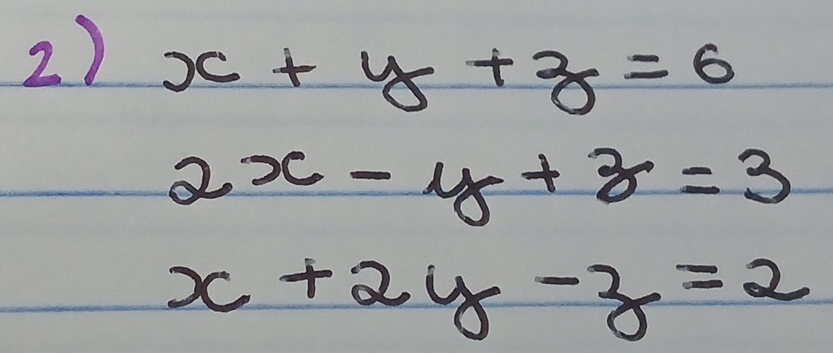 2) x + y + z = 6
2x - y + z = 3
x + 2y - z = 2